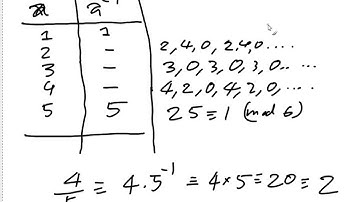 a a⁻¹
1 1
2 — 2,4,0, 2,4,0....
3 — 3,0,3,0,3,0.....
4 — 4,2,0,4,2,0,....
5 5 25≡1 (mod 6)
4/5 ≡ 4.5⁻¹ ≡ 4×5≡20≡2